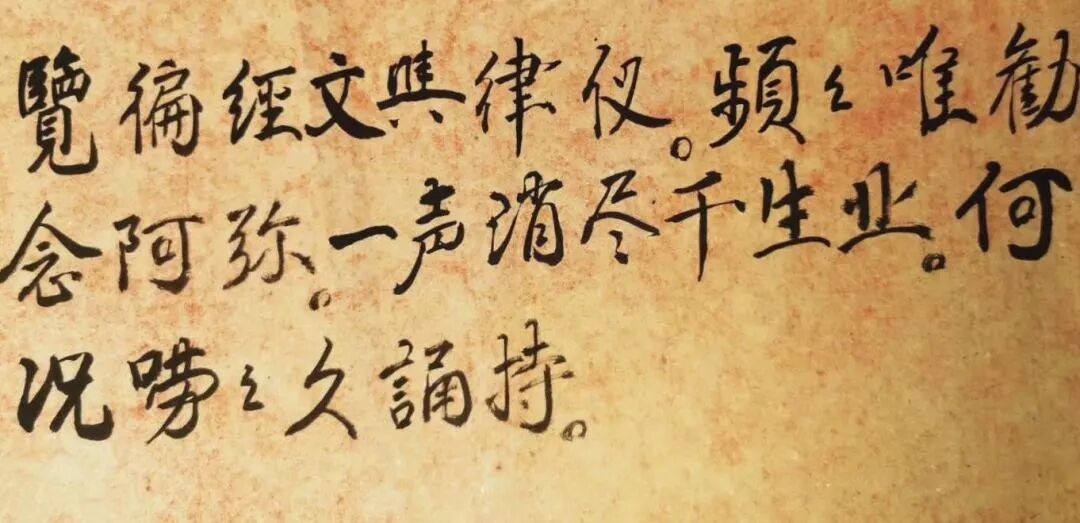 覽徧經文與律仪。頻々唯勸
念阿弥。一声消尽千生业。何
况嘮々久誦持。